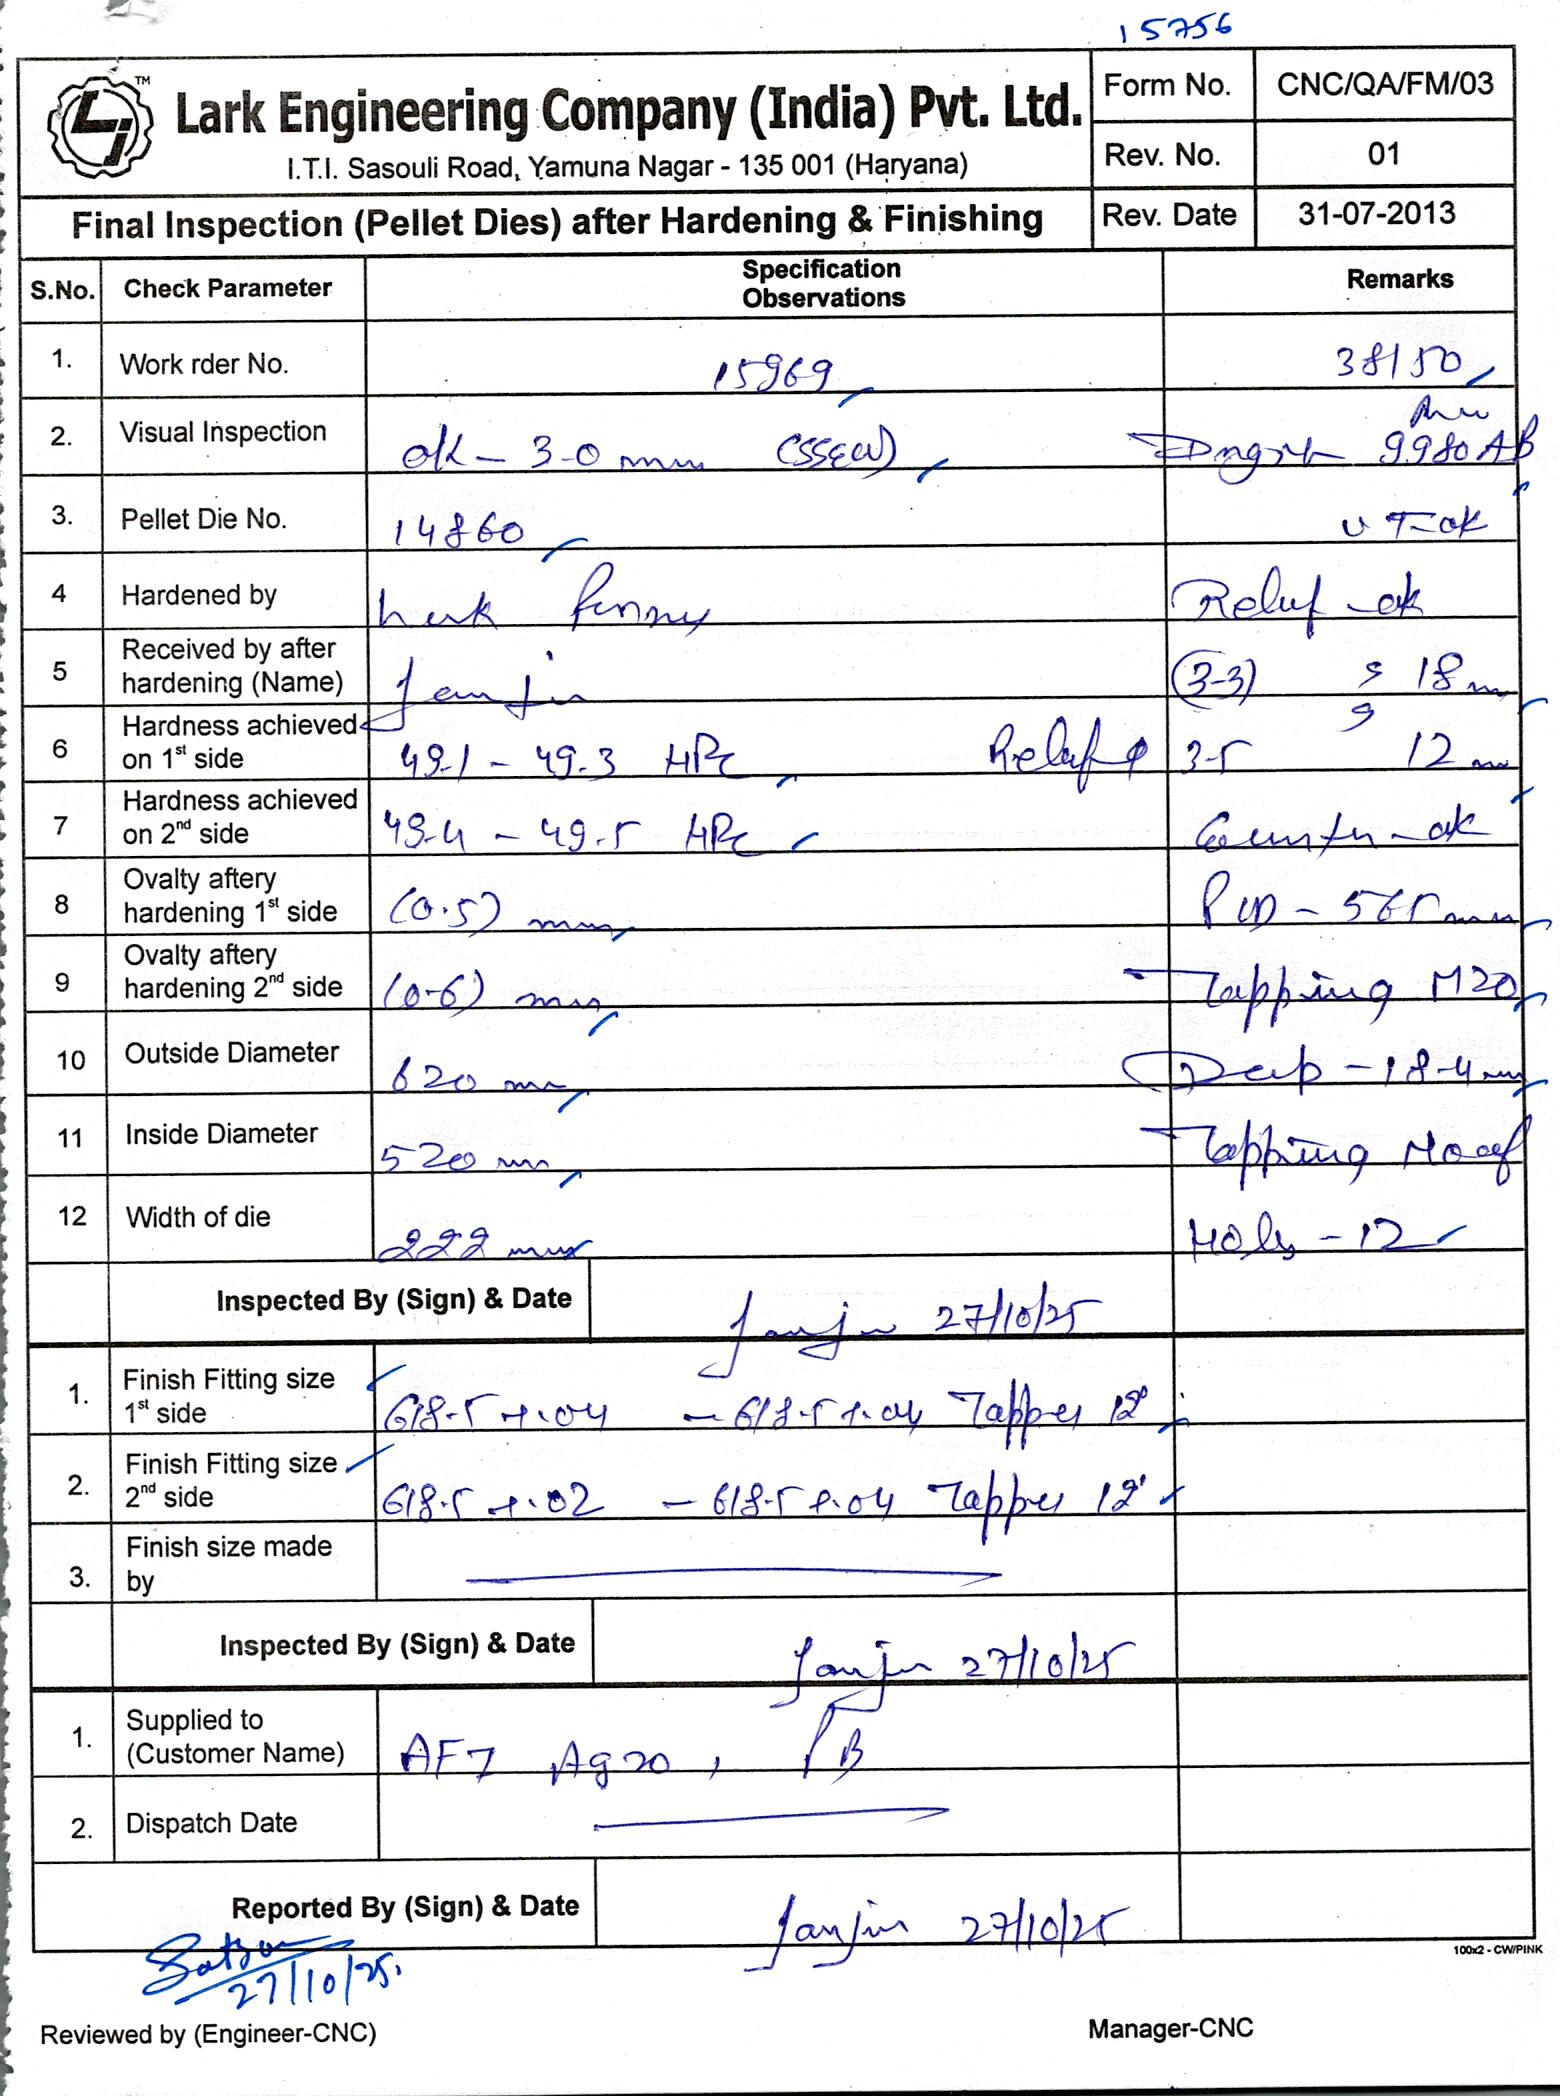 15756
TM
Lark Engineering Company (India) Pvt. Ltd.
I.T.I. Sasouli Road, Yamuna Nagar - 135 001 (Haryana)
Form No. CNC/QA/FM/03
Rev. No. 01
Final Inspection (Pellet Dies) after Hardening & Finishing
Rev. Date 31-07-2013
S.No. Check Parameter Specification Observations Remarks
1. Work rder No. 15969 38150
2. Visual Inspection ok - 3.0 mm 9980AB
3. Pellet Die No. 14860 UT-ok
4 Hardened by Relief -ok
5 Received by after hardening (Name) (3-3) 18 mm
6 Hardness achieved on 1st side 49.1 - 49.3 HRc Relief φ 3.5 12 mm
7 Hardness achieved on 2nd side 49.4 - 49.5 HRc -ok
8 Ovalty aftery hardening 1st side (0.5) mm PCD - 565 mm
9 Ovalty aftery hardening 2nd side (0.6) mm Tapping M20
10 Outside Diameter 620 mm Deep - 18.4 mm
11 Inside Diameter 520 mm Tapping No of
12 Width of die 222 mm Holes - 12
Inspected By (Sign) & Date 27/10/25
1. Finish Fitting size 1st side 618.5 +.04 - 618.5 +.04 Tapper 12°
2. Finish Fitting size 2nd side 618.5 +.02 - 618.5 +.04 Tapper 12°
3. Finish size made by
Inspected By (Sign) & Date 27/10/25
1. Supplied to (Customer Name) Agro, PB
2. Dispatch Date
Reported By (Sign) & Date 27/10/25
100x2 - CW/PINK
27/10/25.
Reviewed by (Engineer-CNC) Manager-CNC